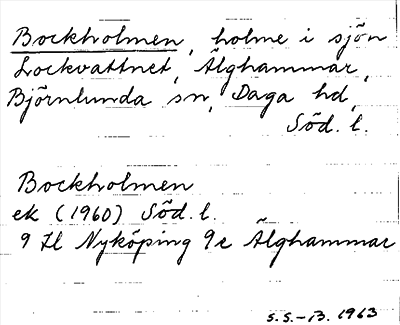 Bockholmen, holme i sjön
Lockvattnet, Älghammar,
Björnlunda sn, Daga hd,
Söd. l.
Bockholmen
ek (1960) Söd. l.
9 H Nyköping 9c Älghammar
S.S.-B. 1963